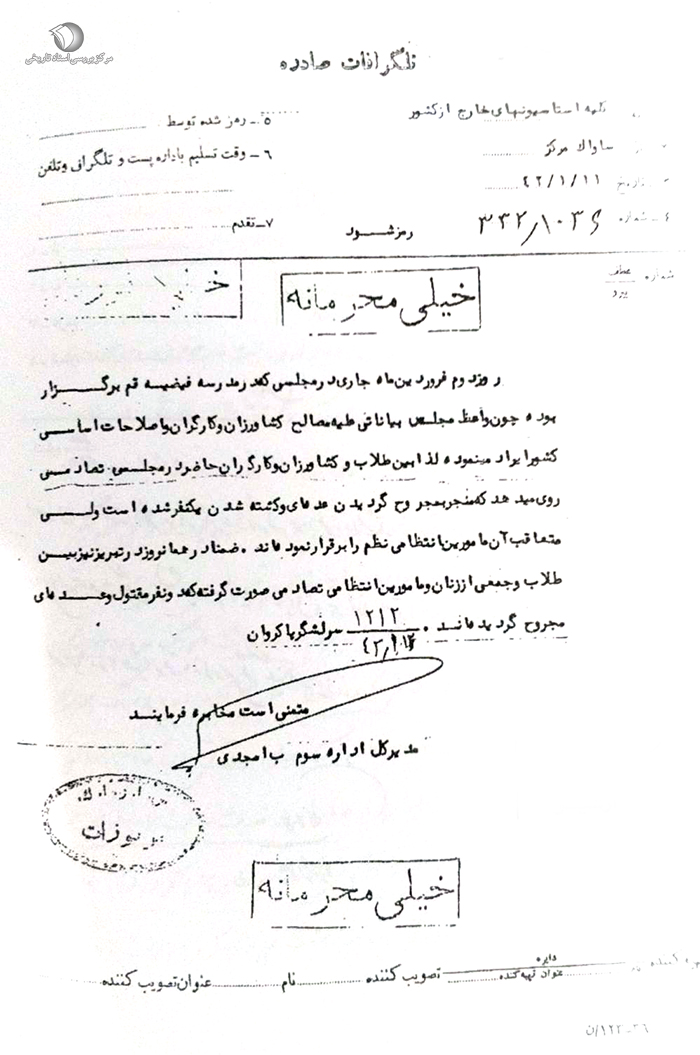 مرکز بررسی اسناد تاریخی
تلگرافات صادره
کلیه استاسیونهای خارج از کشور
۵ـ رمز شده توسط
ساواک مرکز
۶ـ وقت تسلیم باداره پست و تلگراف و تلفن
تاریخ ۴۲/۱/۱۱
۴ـ شماره ۳۳۲/۱۰۳۶
رمز شود
۷ـ تقدم
شماره عطف
پیرو
خیلی محرمانه
روز دوم فروردین ماه جاری در مجلسی که در مدرسه فیضیه قم برگزار
بوده چون واعظ مجلس بیاناتی علیه مصالح کشاورزان و کارگران و اصلاحات اساسی
کشور ایراد مینموده لذا بین طلاب و کشاورزان و کارگران حاضر در مجلس تصادمی
روی میدهد که منجر بمجروح گردیدن عده‌ای و کشته شدن یکنفر شده است ولی
متعاقب آن مامورین انتظامی نظم را برقرار نموده‌اند . ضمنا در همانروز در تبریز نیز بین
طلاب و جمعی از زنان و مامورین انتظامی تصادمی صورت گرفته که دو نفر مقتول و عده‌ای
مجروح گردیده‌اند . ۱۲۱۲ سرلشگر پاکروان
متمنی است مخابره فرمایند
مدیرکل اداره سوم ب امجدی
خیلی محرمانه
دایره
عنوان تهیه کننده
تصویب کننده
نام
عنوان تصویب کننده